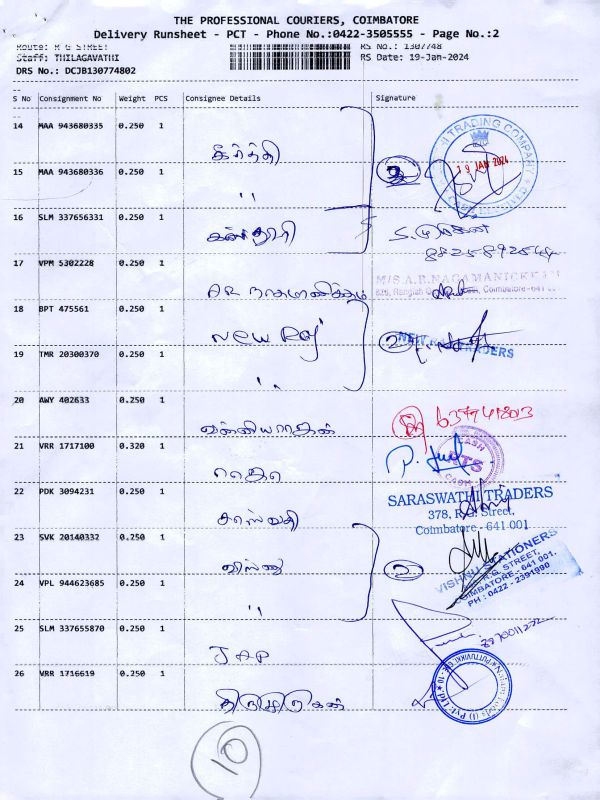 THE PROFESSIONAL COURIERS, COIMBATORE
Delivery Runsheet - PCT - Phone No.:0422-3505555 - Page No.:2
Route: R G STREET
RS No.: 1307748
Staff: THILAGAVATHI
RS Date: 19-Jan-2024
DRS No.: DCJB130774802
S No Consignment No Weight PCS Consignee Details Signature
14 MAA 943680335 0.250 1
கீர்த்தி
15 MAA 943680336 0.250 1
"
19 JAN 2024
16 SLM 337656331 0.250 1
கஸ்தூரி
17 VPM 5302228 0.250 1
AR நாகமாணிக்கம்
M/S.A.R.NAGAMANICKKAM
Coimbatore-641 001
18 BPT 475561 0.250 1
New Raj
2
TRADERS
19 TMR 20300370 0.250 1
"
20 AWY 402633 0.250 1
21 VRR 1717100 0.320 1
CASH
22 PDK 3094231 0.250 1
சரஸ்வதி
SARASWATHI TRADERS
378, R.G. Street,
Coimbatore - 641 001
23 SVK 20140332 0.250 1
விஷ்ணு
2
VISHNU STATIONERS
R.G. STREET,
COIMBATORE - 641 001.
PH : 0422 - 2391990
24 VPL 944623685 0.250 1
"
25 SLM 337655870 0.250 1
JAP
26 VRR 1716619 0.250 1
திருமுருகன்
10